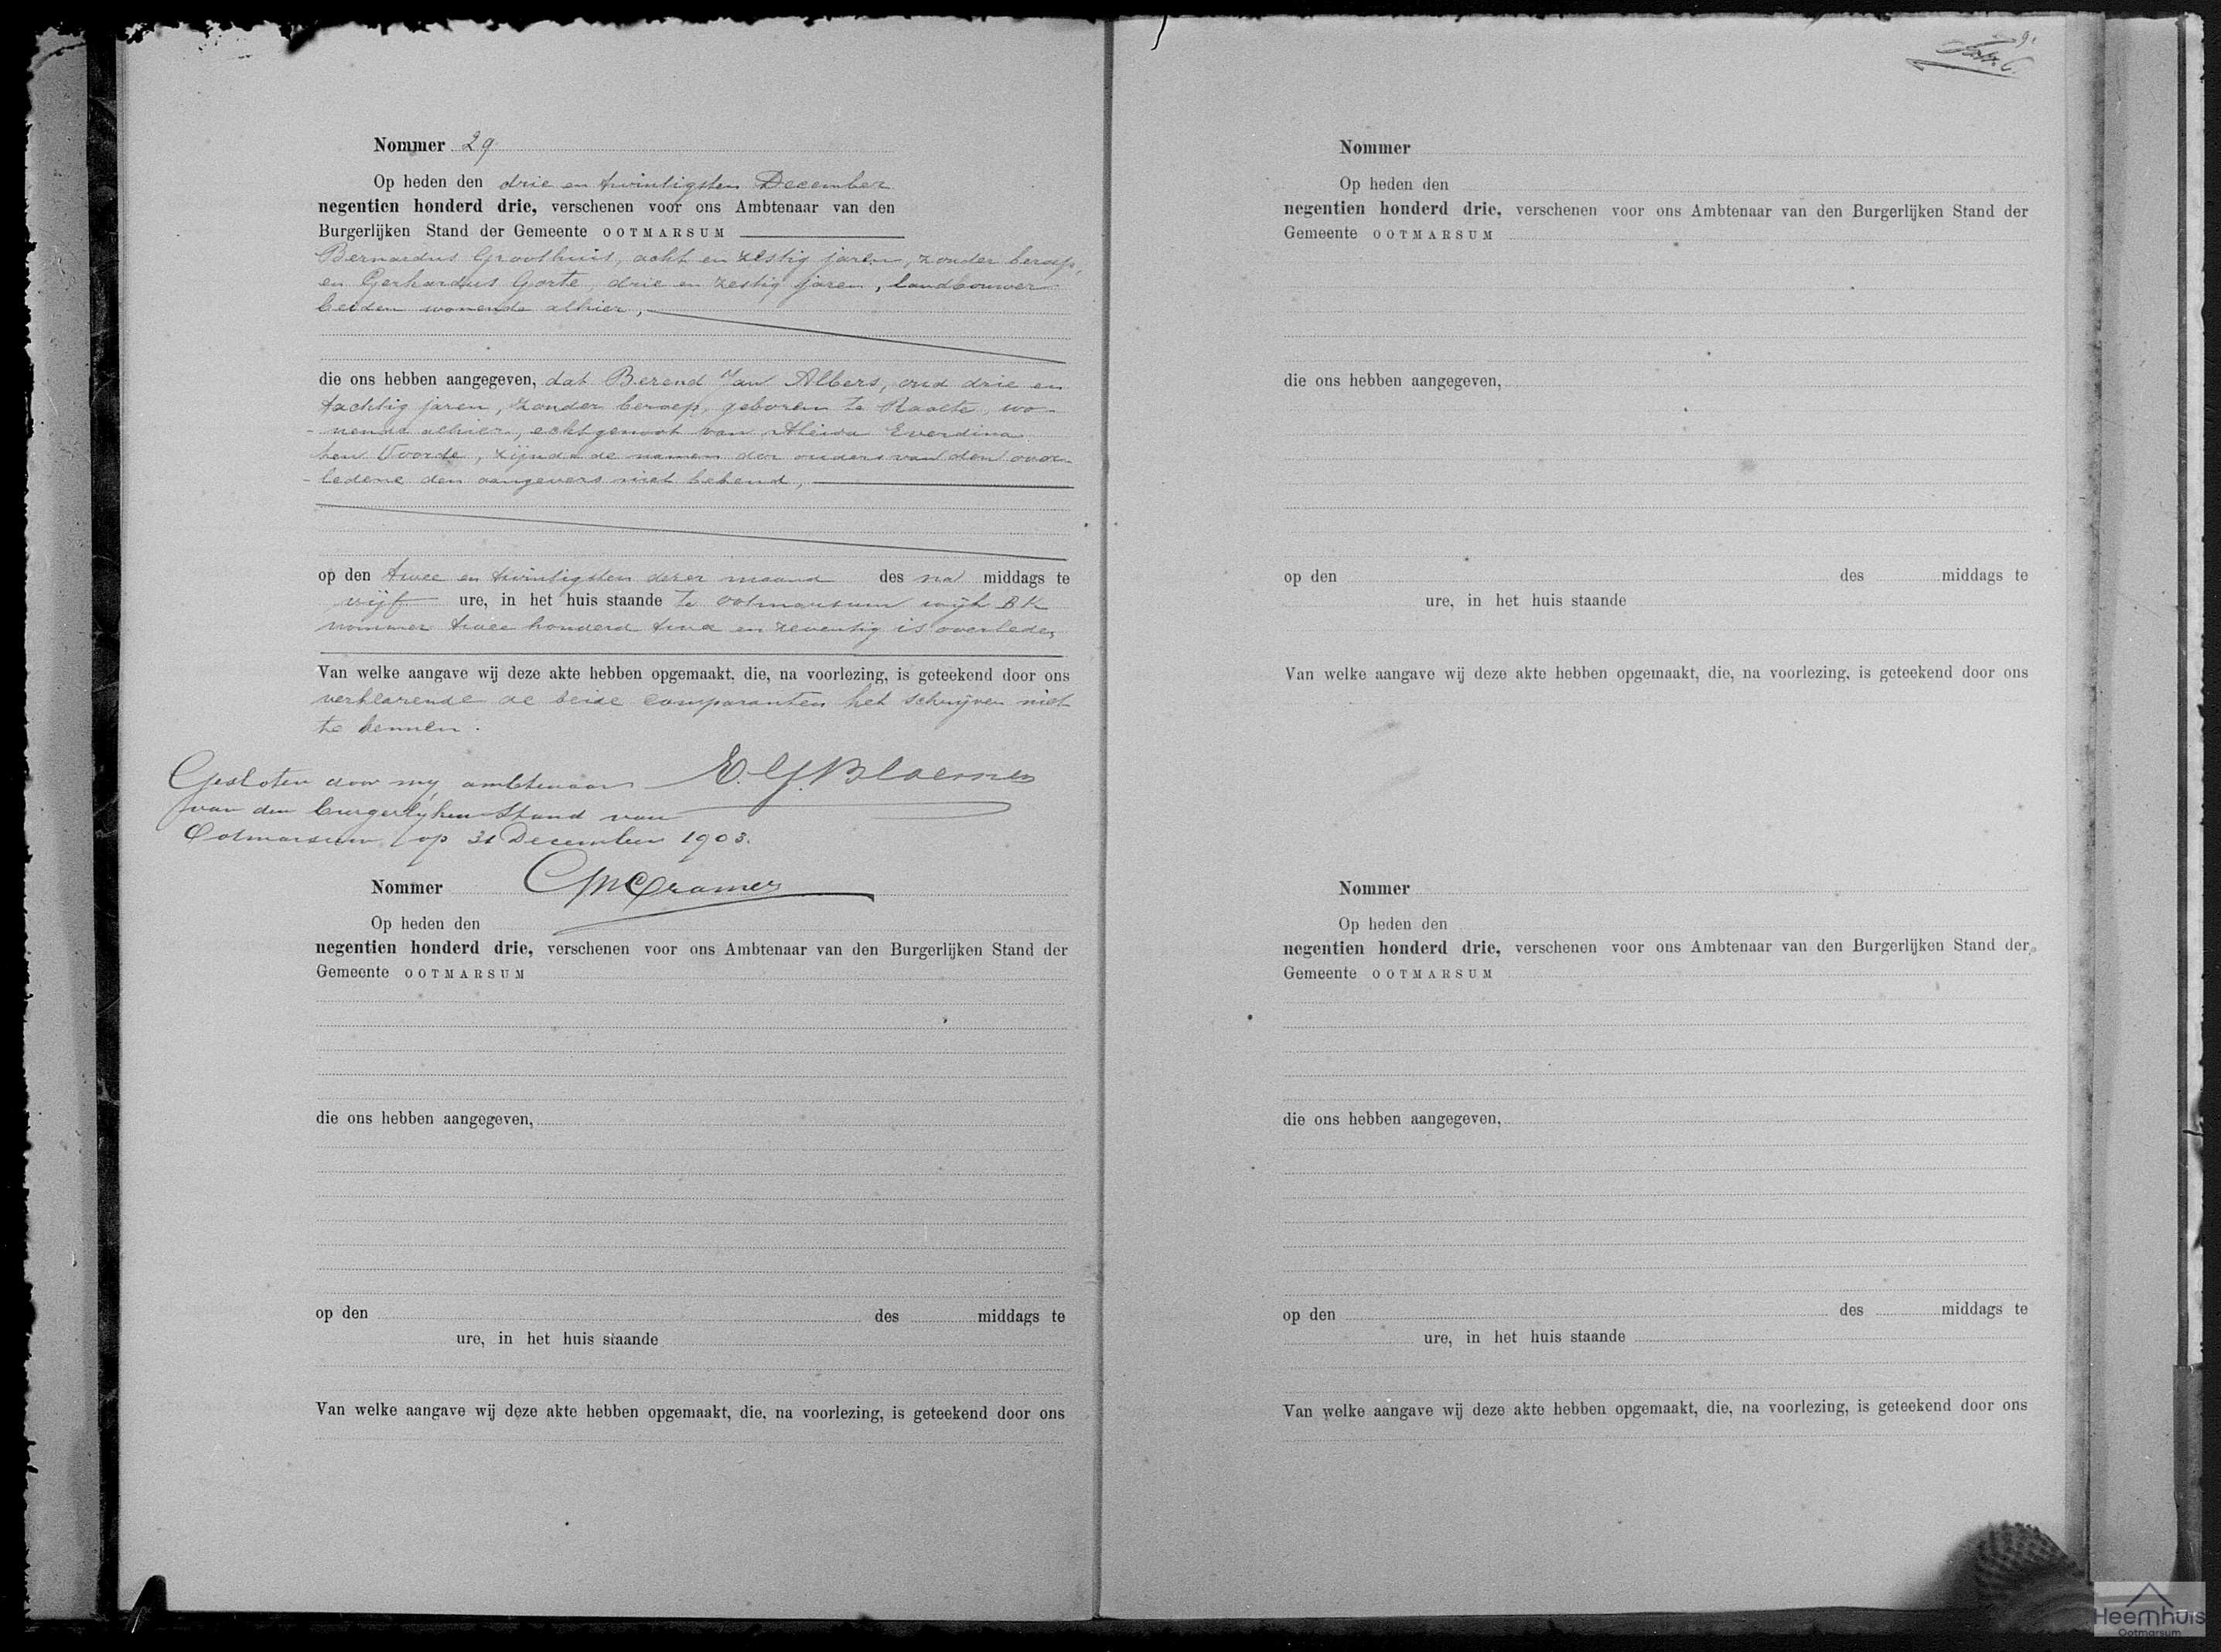 Nommer 29
Op heden den drie en twintigsten December
negentien honderd drie, verschenen voor ons Ambtenaar van den
Burgerlijken Stand der Gemeente OOTMARSUM
Bernardus Groothuis, acht en zestig jaren, zonder beroep,
en Gerhardus Gorte, drie en zestig jaren, landbouwer
beiden wonende alhier,
die ons hebben aangegeven, dat Berend Jan Albers, oud drie en
tachtig jaren, zonder beroep, geboren te Raalte, wo-
nende alhier, echtgenoot van Aleida Everdina
ten Voorde, zijnde de namen der ouders van den over-
ledene den aangevers niet bekend,
op den twee en twintigsten dezer maand des na middags te
vijf ure, in het huis staande te Ootmarsum wijk BK
nommer twee honderd twee en zeventig is overleden
Van welke aangave wij deze akte hebben opgemaakt, die, na voorlezing, is geteekend door ons
verklarende de beide comparanten het schrijven niet
te kennen.
E. G. Bloemen
Gesloten door mij, ambtenaar
van den burgerlijken Stand van
Ootmarsum, op 31 December 1903.
Cramer
Nommer
Op heden den
negentien honderd drie, verschenen voor ons Ambtenaar van den Burgerlijken Stand der
Gemeente OOTMARSUM
die ons hebben aangegeven,
op den des middags te
ure, in het huis staande
Van welke aangave wij deze akte hebben opgemaakt, die, na voorlezing, is geteekend door ons
9.
Nommer
Op heden den
negentien honderd drie, verschenen voor ons Ambtenaar van den Burgerlijken Stand der
Gemeente OOTMARSUM
die ons hebben aangegeven,
op den des middags te
ure, in het huis staande
Van welke aangave wij deze akte hebben opgemaakt, die, na voorlezing, is geteekend door ons
Nommer
Op heden den
negentien honderd drie, verschenen voor ons Ambtenaar van den Burgerlijken Stand der
Gemeente OOTMARSUM
die ons hebben aangegeven,
op den des middags te
ure, in het huis staande
Van welke aangave wij deze akte hebben opgemaakt, die, na voorlezing, is geteekend door ons
Heemhuis
Ootmarsum